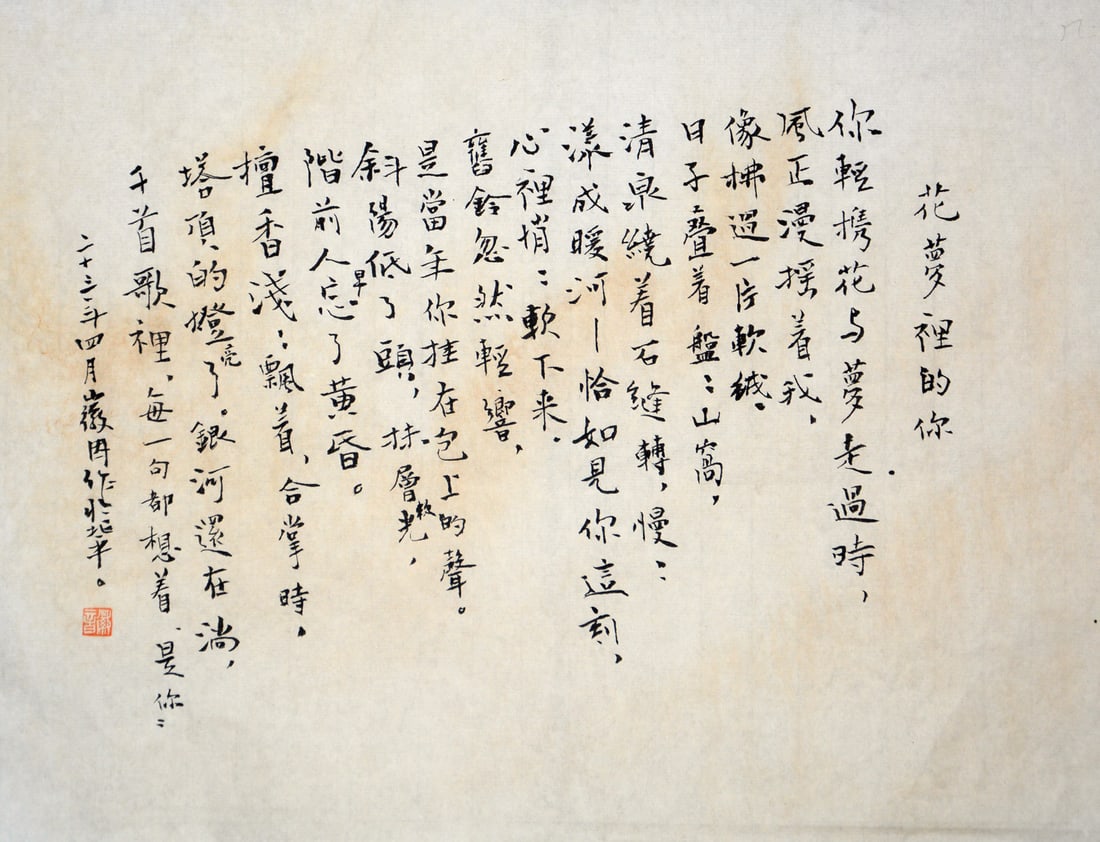 花夢裡的你
你輕攜花与夢走過時，
風正漫搖着我，
像拂過一片軟絨。
日子疊着盤：山窩，
清泉繞着石縫轉，慢：
漾成暖河—恰如見你這刻，
心裡悄：軟下来。
舊鈴忽然輕響，
是當年你挂在包上的聲。
斜陽低了頭，抹層軟光，
階前人早忘了黃昏。
檀香淺：飄着，合掌時，
塔頂的燈亮了。銀河還在淌，
千首歌裡、每一句都想着、是你：
二十三年四月徽因作於北平。